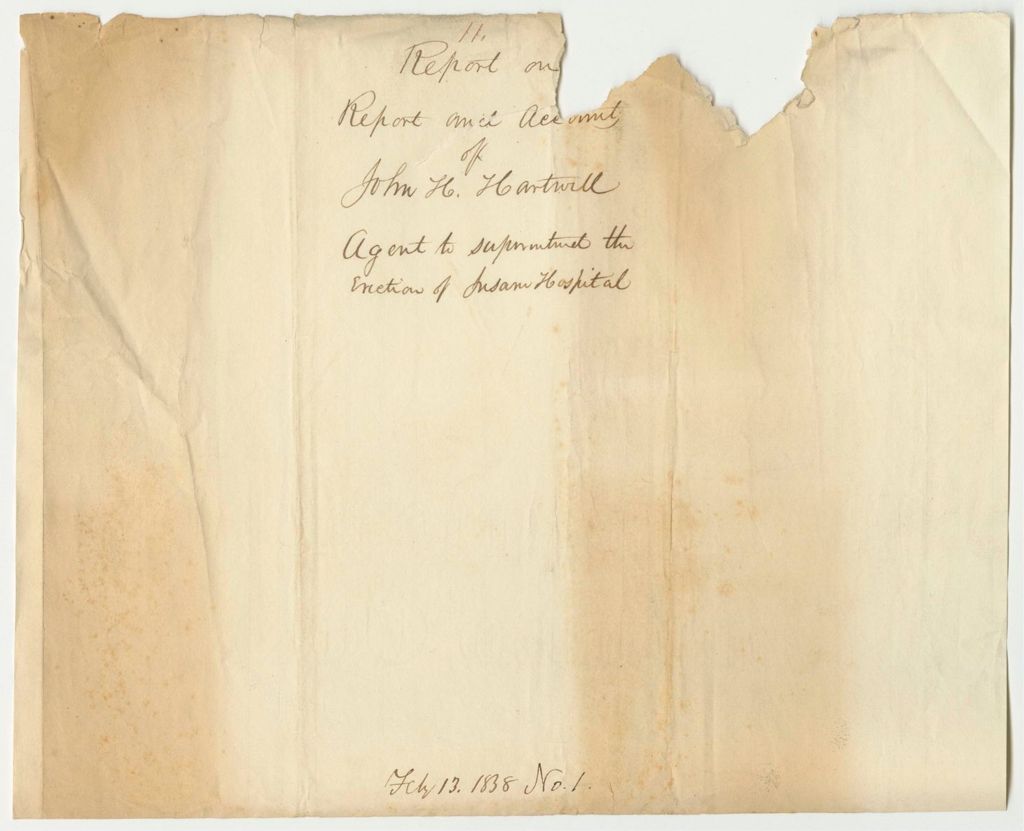 11.
Report on
Report and Account
of
John H. Hartwell
Agent to superintend the
Erection of Insane Hospital
Feb 13. 1838 No. 1.